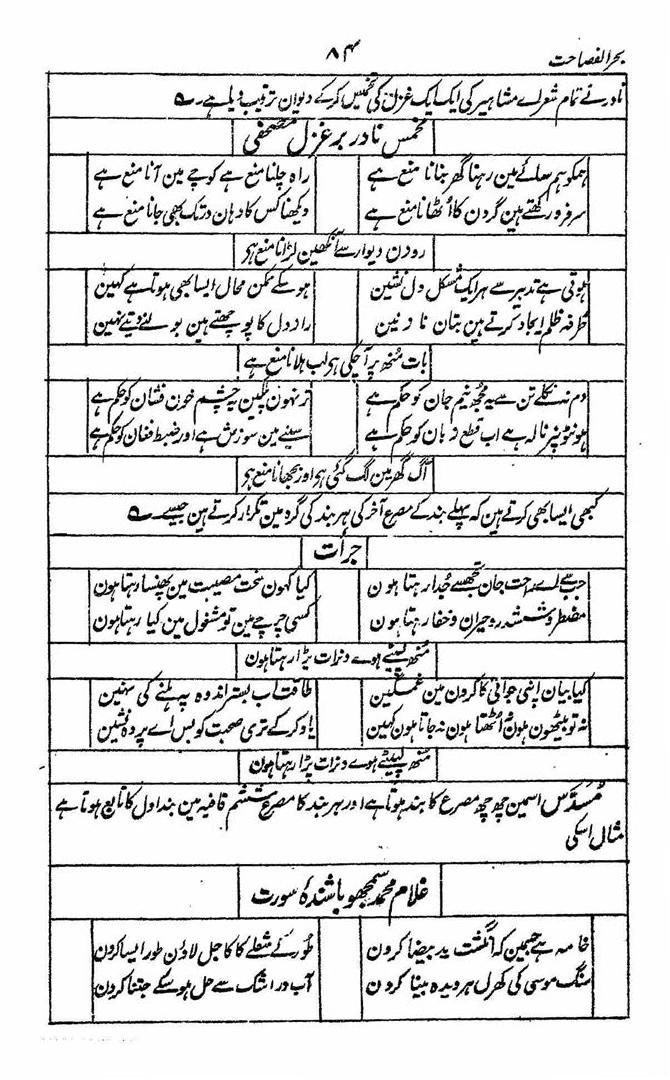 بحر الفصاحت
۸۴
نادر نے تمام شعراے مشاہیر کی ایک ایک غزل کی تخمیس کرکے دیوان ترتیب دیا ہے۔
مخمس نادر بر غزل مصحفی
ہمکو ہمسائے مین رہنا گھر بنانا منع ہے
راہ چلنا منع ہے کوچے مین آنا منع ہے
سرفرو رکھتے ہین گردن کا اُٹھانا منع ہے
دیکھنا کس کا وہان در تک بھی جانا منع ہے
روزن دیوار سے آنکھین لڑانا منع ہو
ہوتی ہے تدبیر سے ہر ایک مشکل دل نشین
ہو سکے ممکن محال ایسا بھی ہوتا ہے کہین
طرفہ ظلم ایجاد کرتے ہین بتان نازنین
راز دل کا پوچھتے ہین بولنے دیتے نہین
بات منھ پر آچکی ہر لب ہلانا منع ہے
دم نہ نکلے تن سے یہ مجھ نیم جان کو حکم ہے
تر نہون پلکین یہ چشم خون فشان کو حکم ہے
ہونٹو نپر نالہ ہے اب قطع زبان کو حکم ہے
سینے مین سوزش ہے اور ضبط فغان کو حکم ہے
آگ گھر مین لگ گئی ہر اور بجھانا منع ہو
کبھی ایسا بھی کرتے ہین کہ پہلے بند کے مصرع آخر کی ہر بند کی گرہ مین تکرار کرتے ہین جیسے
جرأت
جب سے اے راحت جان تجھسے جدا رہتا ہون
کیا کہون سخت مصیبت مین پھنسا رہتا ہون
مضطر و ششدر و حیران و خفا رہتا ہون
کسی چرچے مین تو مشغول مین کیا رہتا ہون
منھ لپیٹے ہوے دنرات پڑا رہتا ہون
کیا بیان اپنی جوانی کا کرون مین غمگین
طاقت اب بستر اندوہ پہ ہلنے کی نہین
نہ تو بیٹھون ہون نہ اُٹھتا ہون نہ جاتا ہون کہین
یاد کرکے تری صحبت کو بس اے پردہ نشین
منھ لپیٹے ہوے دنرات پڑا رہتا ہون
مُسدّس اسمین چھ چھ مصرع کا بند ہوتا ہے اور ہر بند کا مصرع ششم قافیہ مین بند اول کا تابع ہوتا ہے
مثال اسکی
غلام محمد سمجھو باشندۂ سورت
خامہ ہے جسمین کہ انگشت ید بیضا کرون
طور کے شعلے کا کاجل لاؤن طور ایسا کرون
سنگ موسی کی کھرل ہر دیدہ بینا کرون
آب در اشک سے حل ہو سکے جتنا کرون